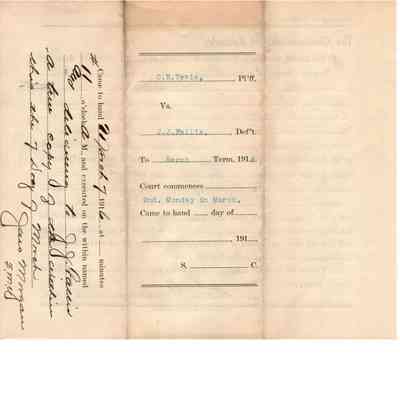 Pl'ff.
Vs.
Def't.
To March Term, 191
Court commences
2nd. Monday in March.
Came to hand day of
, 191
S. C.
Came to hand March 7 1916 at minutes
11 o'clock A M., and executed on the within named
By delivering to J J
A true copy of the within
this the 7 day March
Morgan